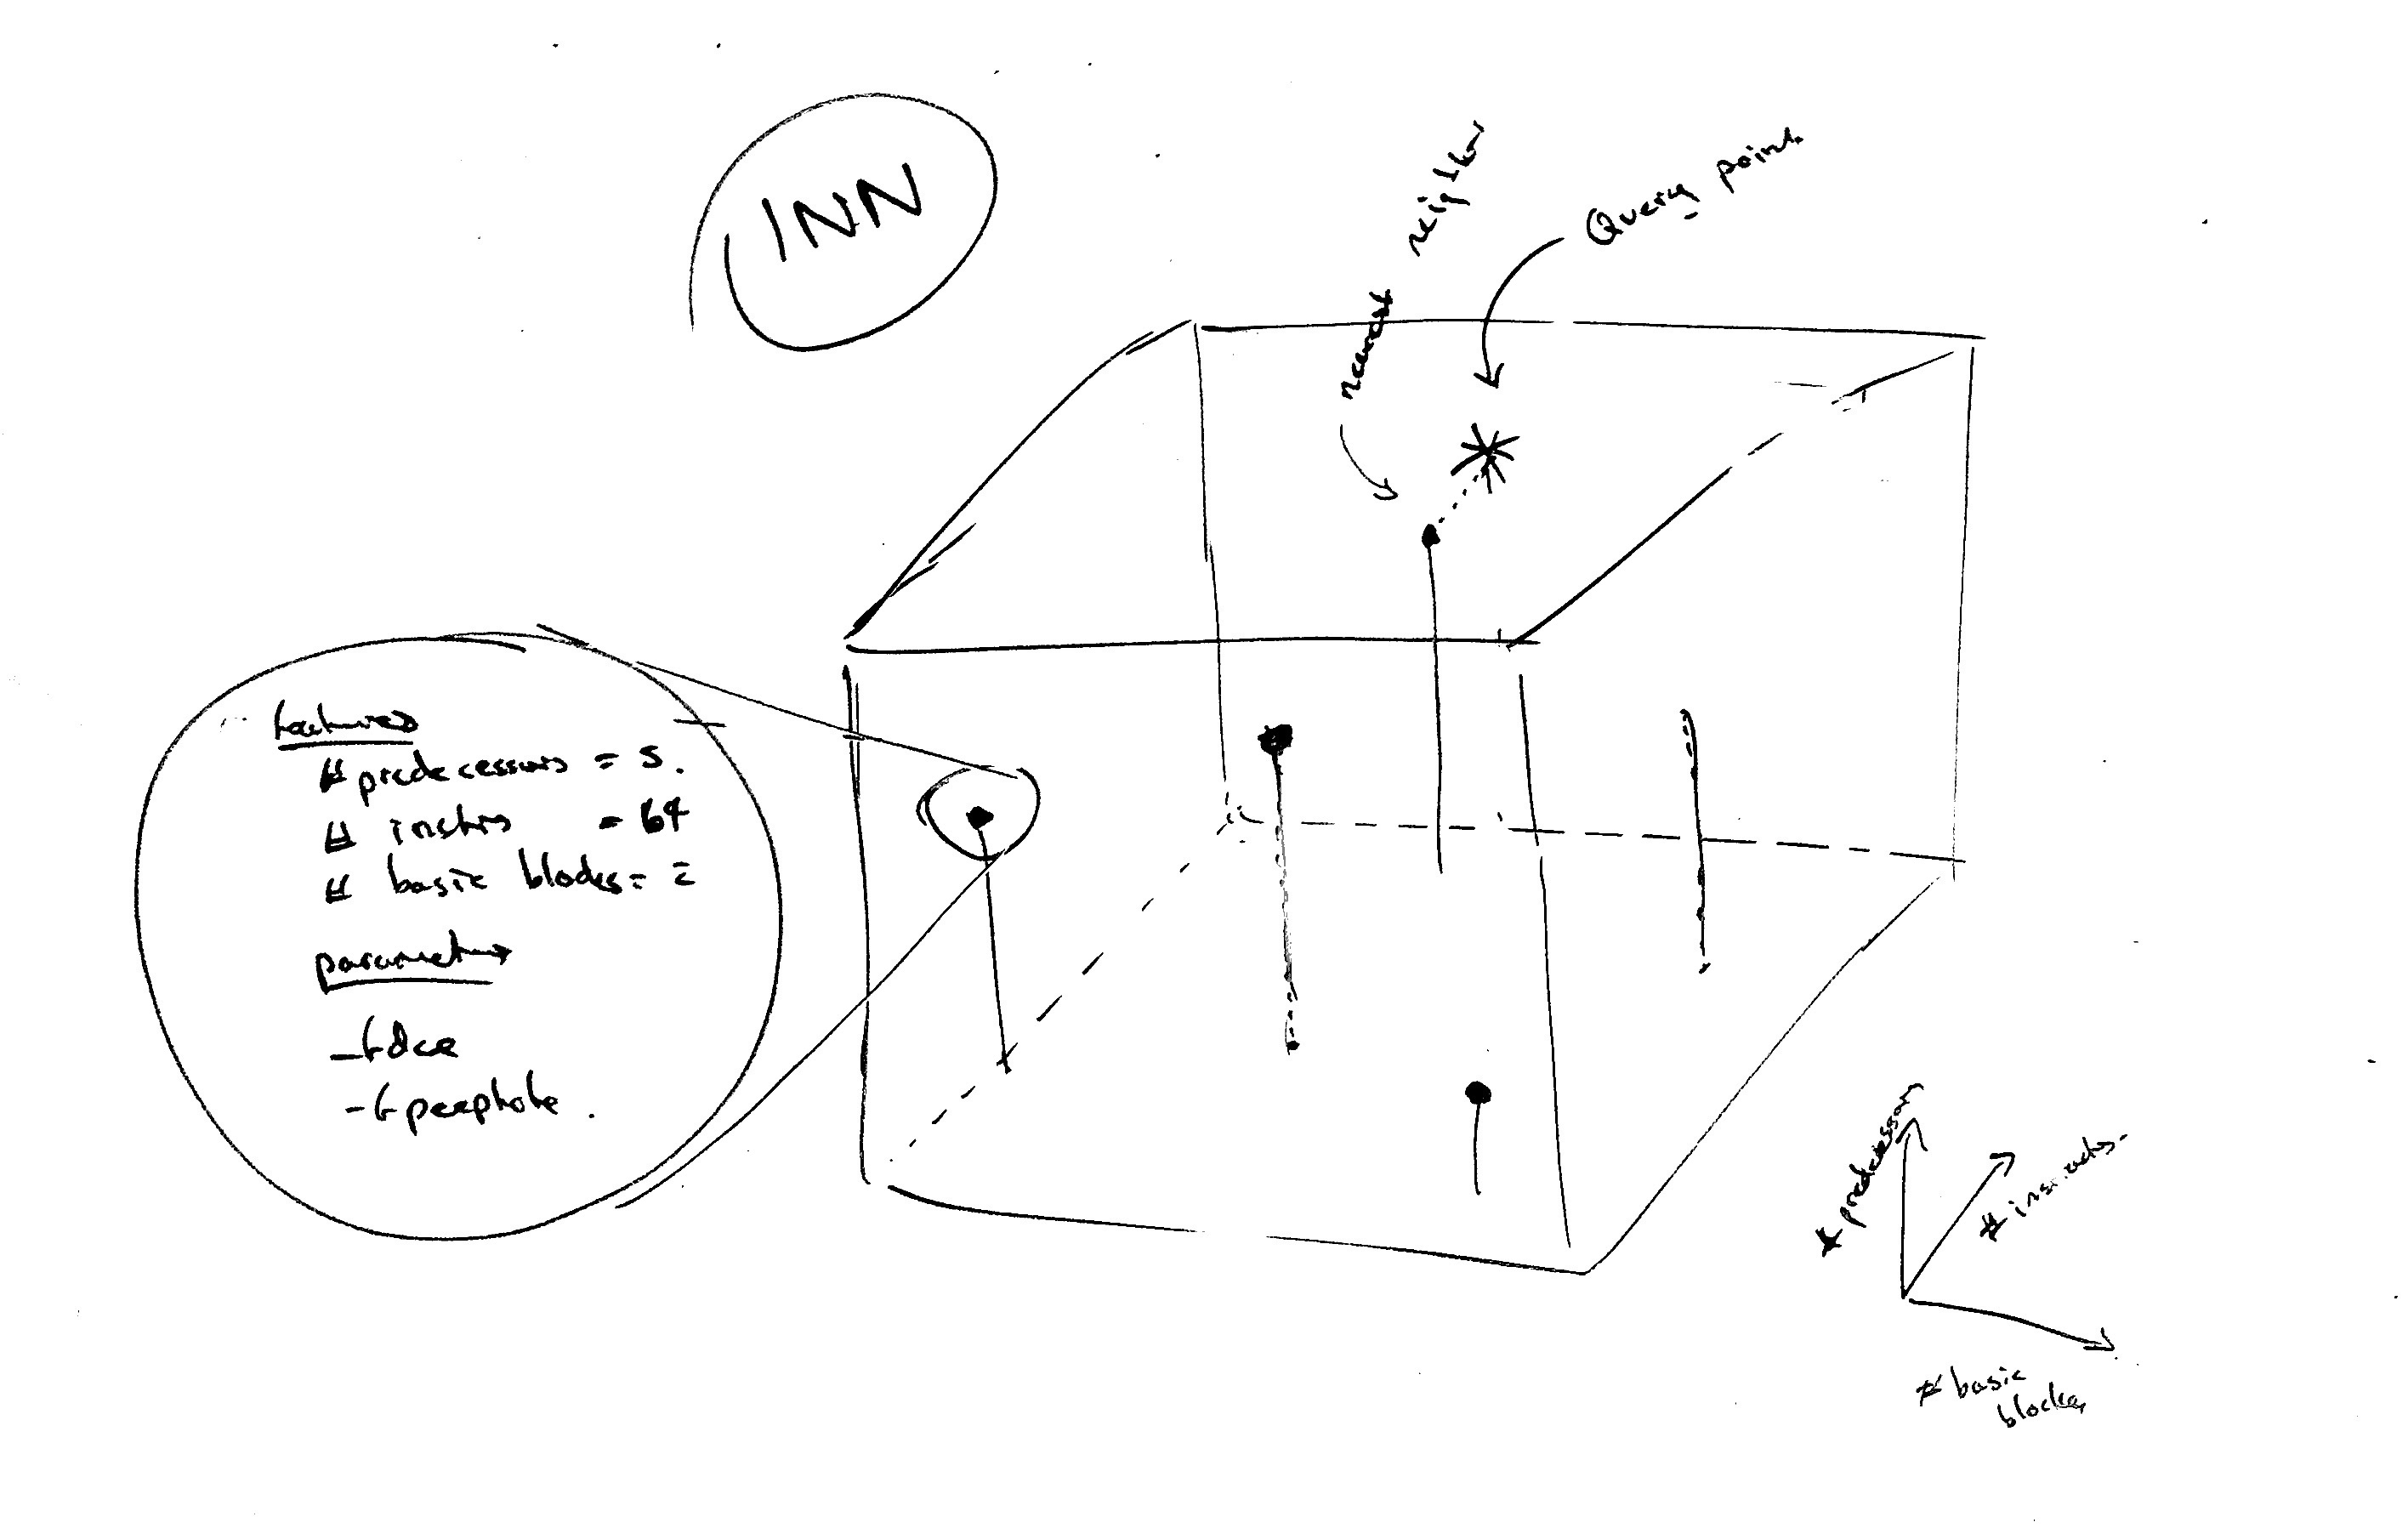 1NN
nearest neighbor
Query point
features
# predecessors = 5.
# instrs = 64
# basic blocks = 2
parameters
-fdce
-fpeephole.
# predecessors
# instructs.
# basic
blocks